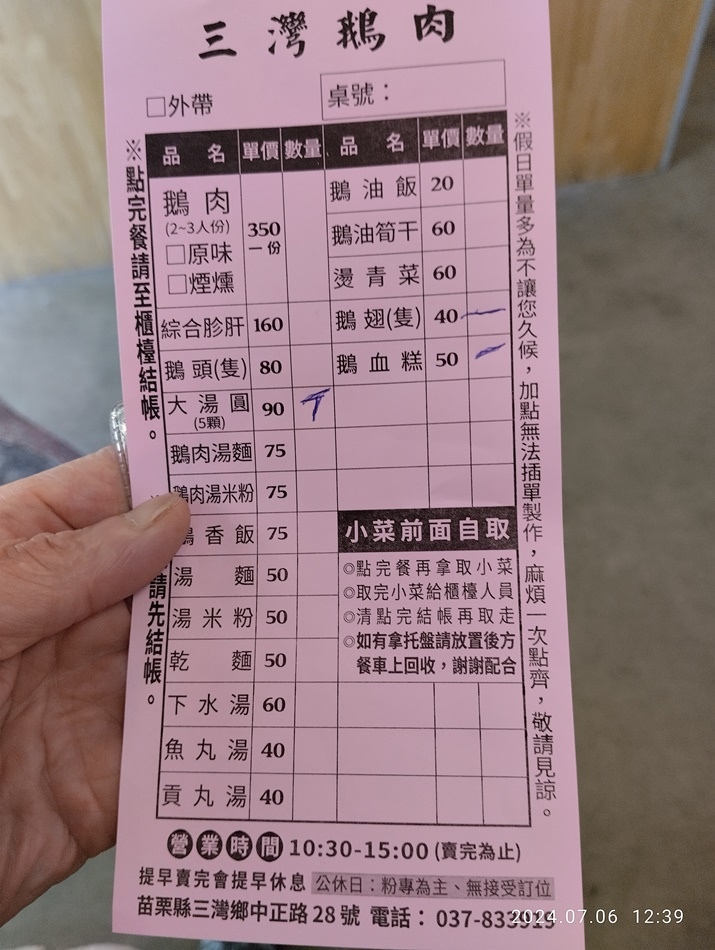 三灣鵝肉
□外帶
桌號：
品名 單價 數量 品名 單價 數量
鵝肉
(2~3人份)
□原味
□煙燻
350
一份
綜合胗肝 160
鵝頭(隻) 80
大湯圓
(5顆)
90
鵝肉湯麵 75
鵝肉湯米粉 75
香飯 75
湯麵 50
湯米粉 50
乾麵 50
下水湯 60
魚丸湯 40
貢丸湯 40
鵝油飯 20
鵝油筍干 60
燙青菜 60
鵝翅(隻) 40 一
鵝血糕 50
小菜前面自取
◎點完餐再拿取小菜
◎取完小菜給櫃檯人員
◎清點完結帳再取走
◎如有拿托盤請放置後方
餐車上回收，謝謝配合
※點完餐請至櫃檯結帳。
請先結帳。
※假日單量多為不讓您久候，加點無法插單製作，麻煩一次點齊，敬請見諒。
營業時間 10:30-15:00 (賣完為止)
提早賣完會提早休息 公休日：粉專為主、無接受訂位
苗栗縣三灣鄉中正路28號 電話：037-833919
2024.07.06 12:39